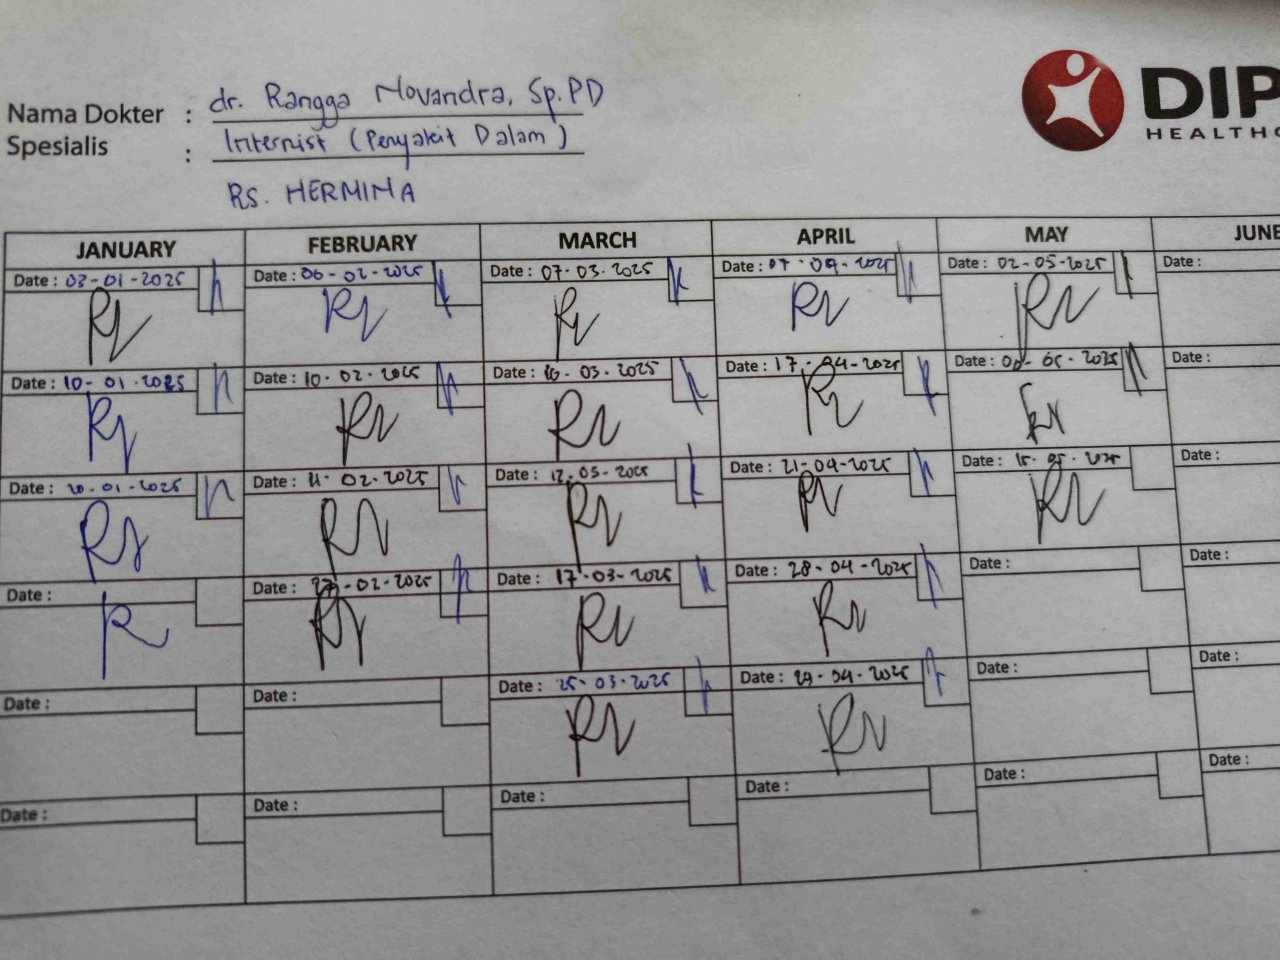 Nama Dokter : dr. Rangga Novandra, Sp.PD
Spesialis : Internist (Penyakit Dalam)
RS. HERMINA
DIP
HEALTHC
JANUARY FEBRUARY MARCH APRIL MAY JUNE
Date : 03-01-2025 Date : 06-02-2025 Date : 07-03-2025 Date : 07-04-2025 Date : 02-05-2025 Date :
Date : 10-01-2025 Date : 10-02-2025 Date : 10-03-2025 Date : 17-04-2025 Date : 05-2025 Date :
Date : 20-01-2025 Date : 11-02-2025 Date : 12-03-2025 Date : 21-04-2025 Date : 15-05-2025 Date :
Date : Date : 27-02-2025 Date : 17-03-2025 Date : 28-04-2025 Date : Date :
Date : Date : Date : 25-03-2025 Date : 29-04-2025 Date : Date :
Date : Date : Date : Date : Date : Date :